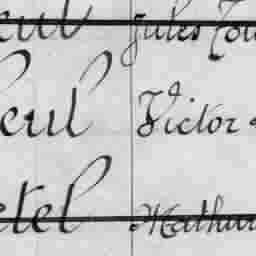 eul Jules Tou
eul Victor
etel Mathur